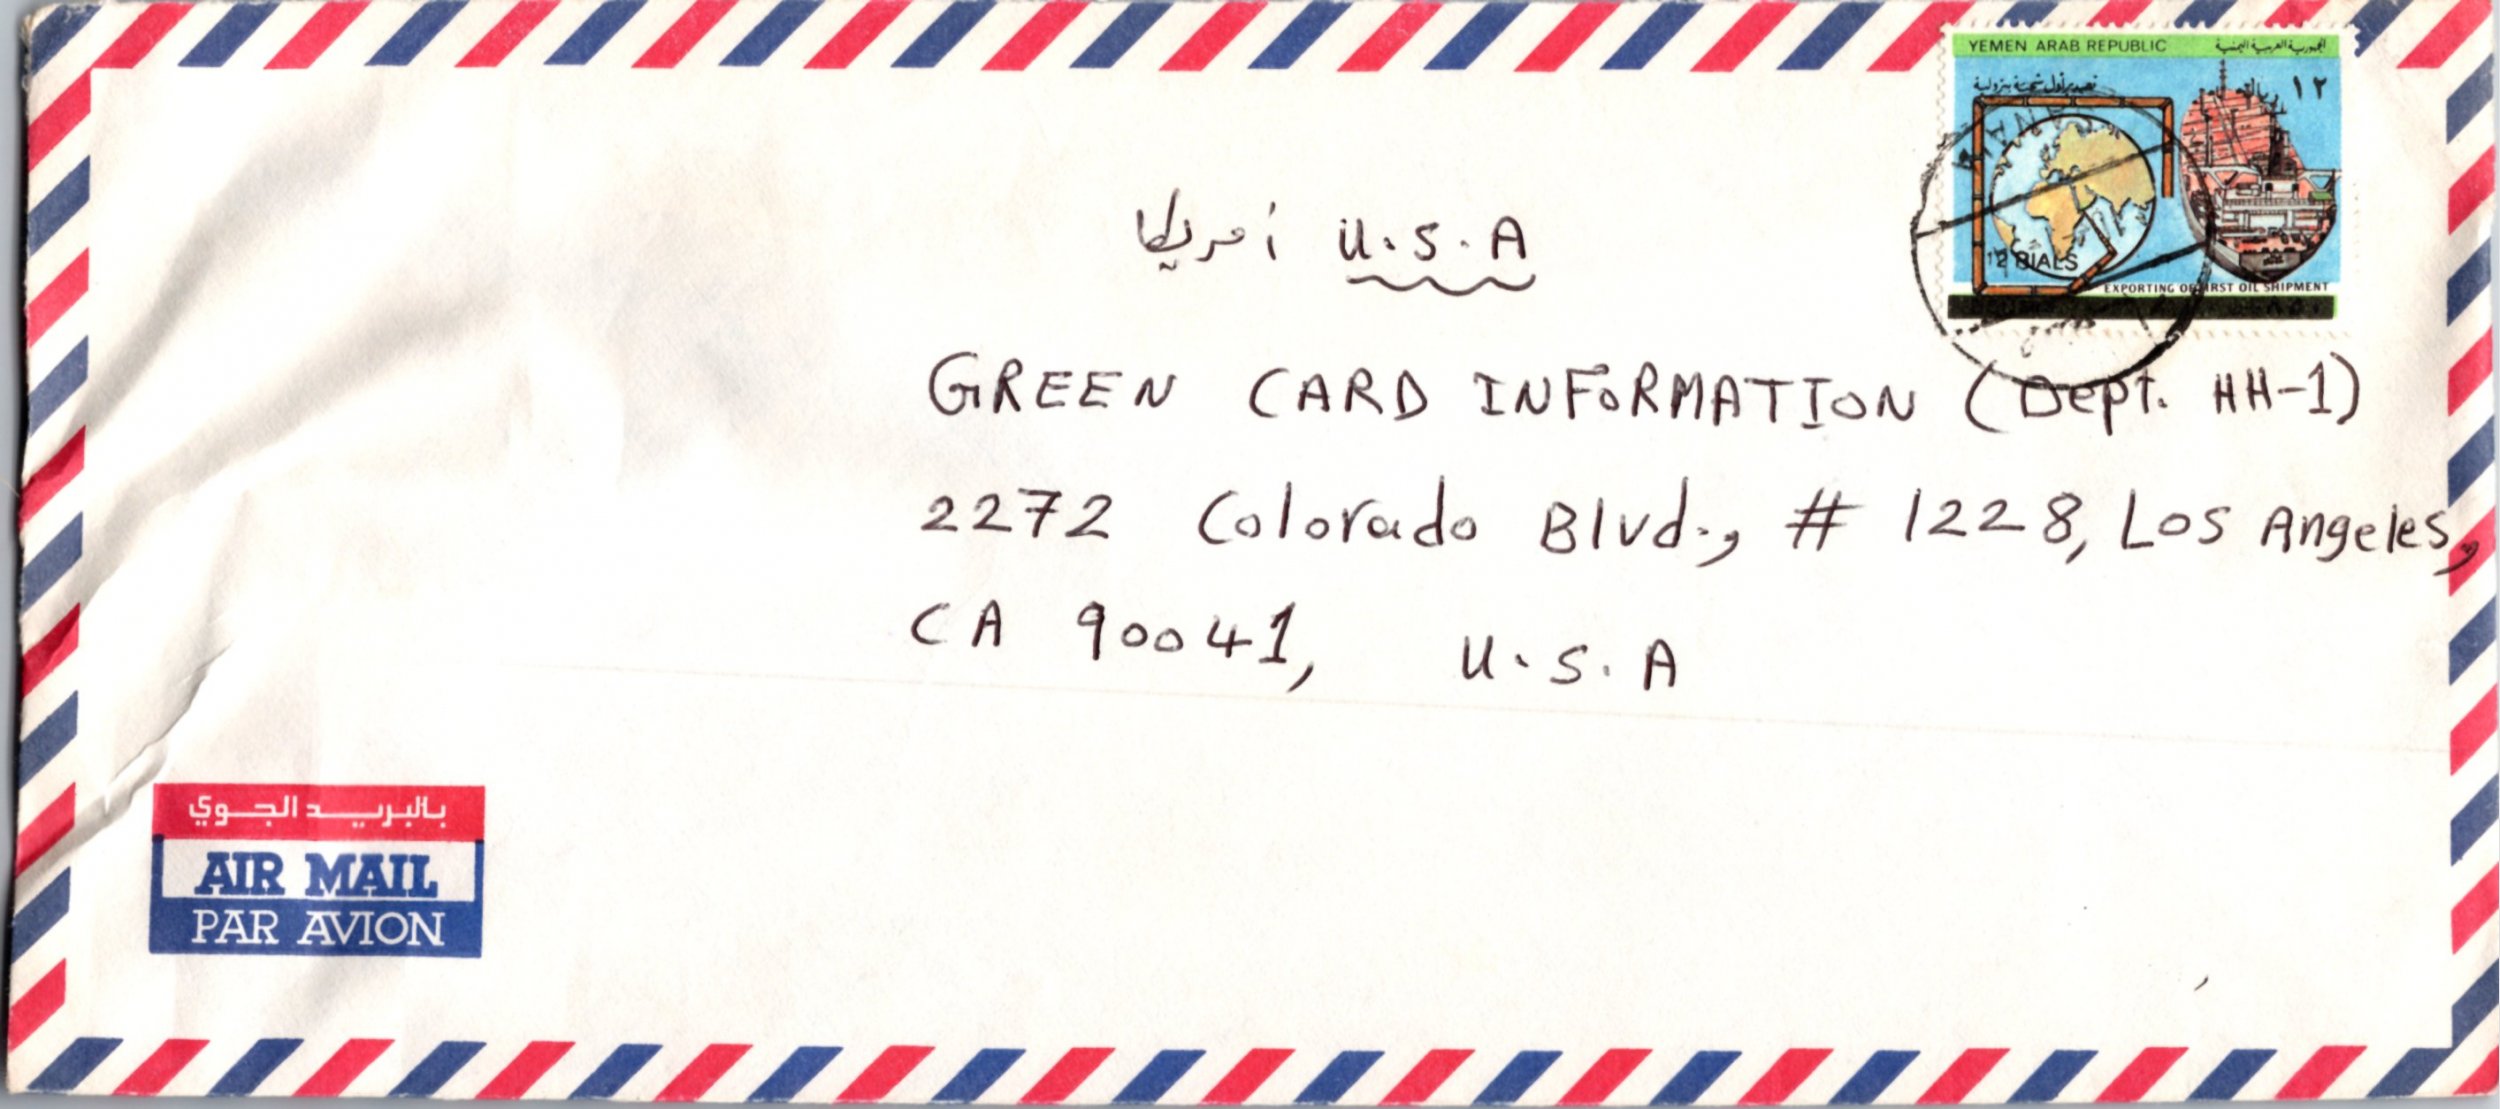 YEMEN ARAB REPUBLIC الجمهورية العربية اليمنية
تصدير أول شحنة بترولية ١٢
12 RIALS
EXPORTING OF FIRST OIL SHIPMENT
أمريكا U.S.A
GREEN CARD INFORMATION (Dept. HH-1)
2272 Colorado Blvd., # 1228, Los Angeles,
CA 90041, U.S.A
بالبريد الجوي
AIR MAIL
PAR AVION